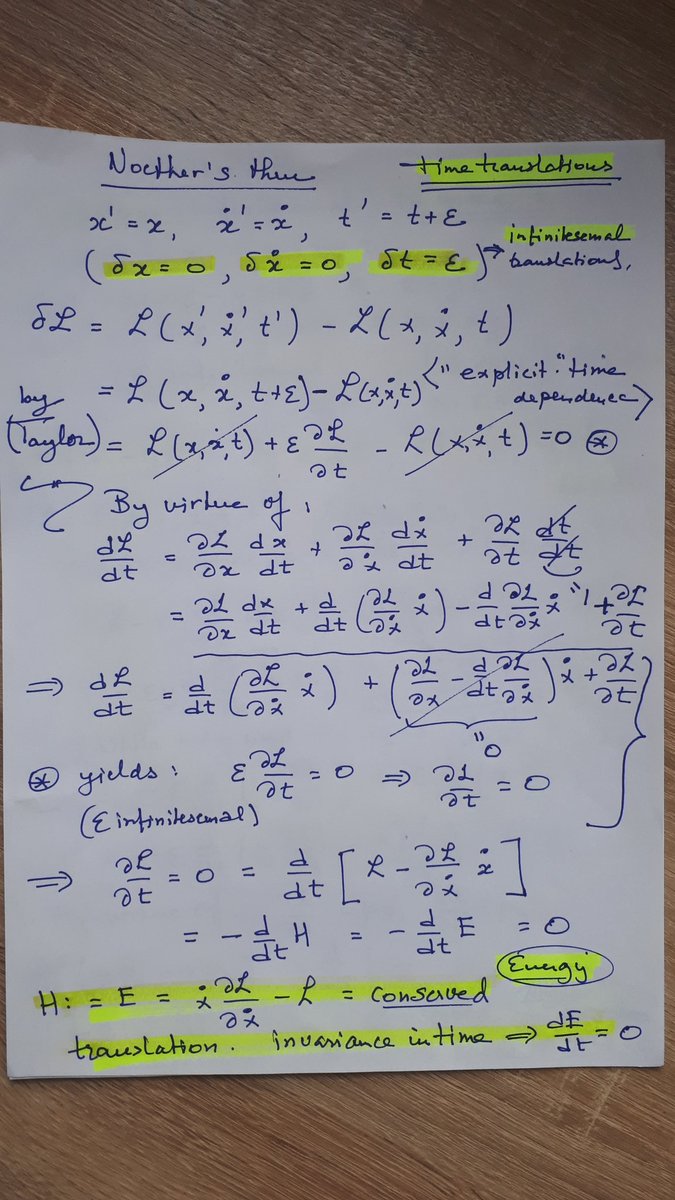 Noether's thm time translations
x' = x, ẋ' = ẋ, t' = t+ε
(δx = 0, δẋ = 0, δt = ε) → infinitesemal translations,
δL = L(x', ẋ', t') − L(x, ẋ, t)
= L(x, ẋ, t+ε) − L(x, ẋ, t) <"explicit" time dependence>
by (Taylor) = L(x, ẋ, t) + ε ∂L/∂t − L(x, ẋ, t) = 0 ⊛
By virtue of:
dL/dt = ∂L/∂x dx/dt + ∂L/∂ẋ dẋ/dt + ∂L/∂t dt/dt
= ∂L/∂x dx/dt + d/dt (∂L/∂ẋ ẋ) − d/dt ∂L/∂ẋ ẋ "1 + ∂L/∂t
⇒ dL/dt = d/dt (∂L/∂ẋ ẋ) + (∂L/∂x − d/dt ∂L/∂ẋ) ẋ + ∂L/∂t
"0
⊛ yields: ε ∂L/∂t = 0 ⇒ ∂L/∂t = 0
(ε infinitesemal)
⇒ ∂L/∂t = 0 = d/dt [L − ∂L/∂ẋ ẋ]
= − d/dt H = − d/dt E = 0
Energy
H: = E = ẋ ∂L/∂ẋ − L = conserved
translation. invariance in time ⇒ dE/dt = 0